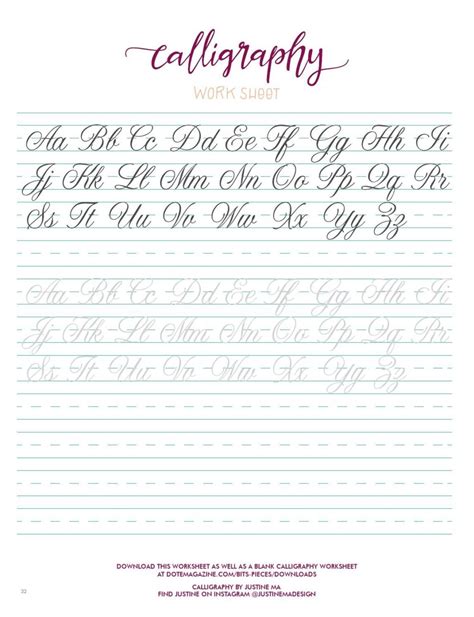 calligraphy
WORK SHEET
Aa Bb Cc Dd Ee Ff Gg Hh Ii
Jj Kk Ll Mm Nn Oo Pp Qq Rr
Ss Tt Uu Vv Ww Xx Yy Zz
Aa Bb Cc Dd Ee Ff Gg Hh Ii
Jj Kk Ll Mm Nn Oo Pp Qq Rr
Ss Tt Uu Vv Ww Xx Yy Zz
DOWNLOAD THIS WORKSHEET AS WELL AS A BLANK CALLIGRAPHY WORKSHEET
AT DOTEMAGAZINE.COM/BITS-PIECES/DOWNLOADS
CALLIGRAPHY BY JUSTINE MA
FIND JUSTINE ON INSTAGRAM @JUSTINEMADESIGN